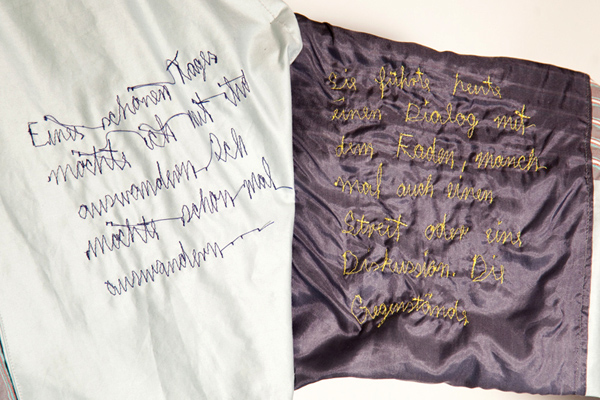 Eines schönen Tages
möchte ich mit ihr
auswandern. Ich
möchte schon mal
auswandern
Sie führte heute
einen Dialog mit
dem Faden, manch
mal auch einen
Streit oder eine
Diskussion. Die
Gegenstände